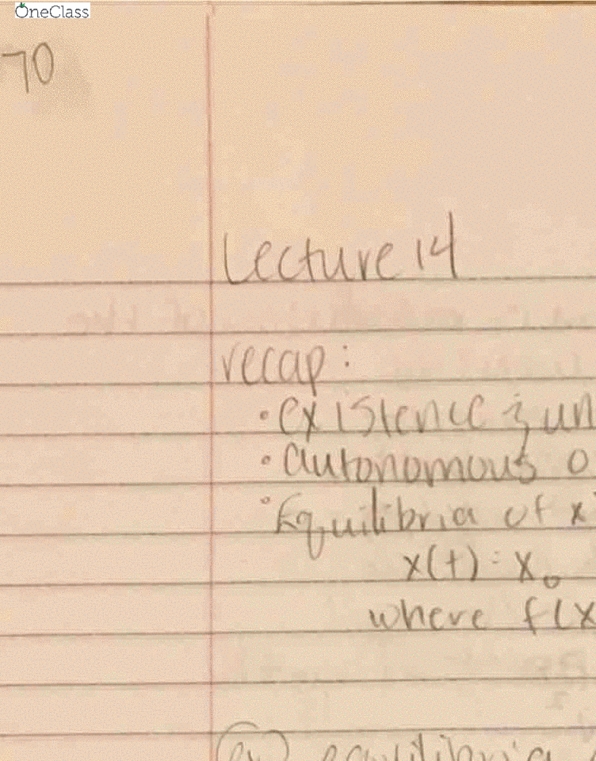 OneClass
70
Lecture 14
recap:
• existence & un
• autonomous o
• Equilibria of x
x(t) = x₀
where f(x
equilibria